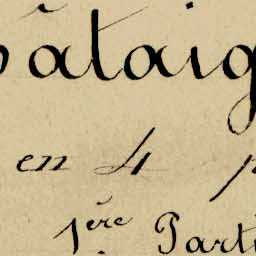 bâtaig
en 4 p
1ère Parti